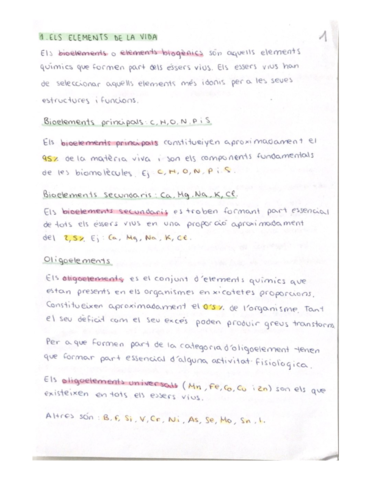 1. ELS ELEMENTS DE LA VIDA
1
Els bioelements o elements biogènics són aquells elements
químics que formen part dels éssers vius. Els éssers vius han
de seleccionar aquells elements més idonis per a les seves
estructures i funcions.
Bioelements principals C, H, O, N, P i S.
Els bioelements principals constitueixen aproximadament el
95% de la matèria viva i són els components fonamentals
de les biomolècules. Ej C, H, O, N, P i S.
Bioelements secundaris: Ca, Mg, Na, K, Cl.
Els bioelement secundaris es troben formant part essencial
de tots els éssers vius en una proporció aproximadament
del 4,5%. Ej Ca, Mg, Na, K, Cl.
Oligoelements
Els oligoelements es el conjunt d'elements químics que
estan presents en els organismes en xicotetes proporcions.
Constitueixen aproximadament el 0'5% de l'organisme. Tant
el seu dèficit com el seu excés poden produir greus transtorns
Per a que formen part de la categoria d'oligoelement tenen
que formar part essencial d'alguna activitat fisiològica.
Els oligoelements universals (Mn, Fe, Co, Cu i Zn) són els que
existeixen en tots els éssers vius.
Altres són: B, F, Si, V, Cr, Ni, As, Se, Mo, Sn, I.